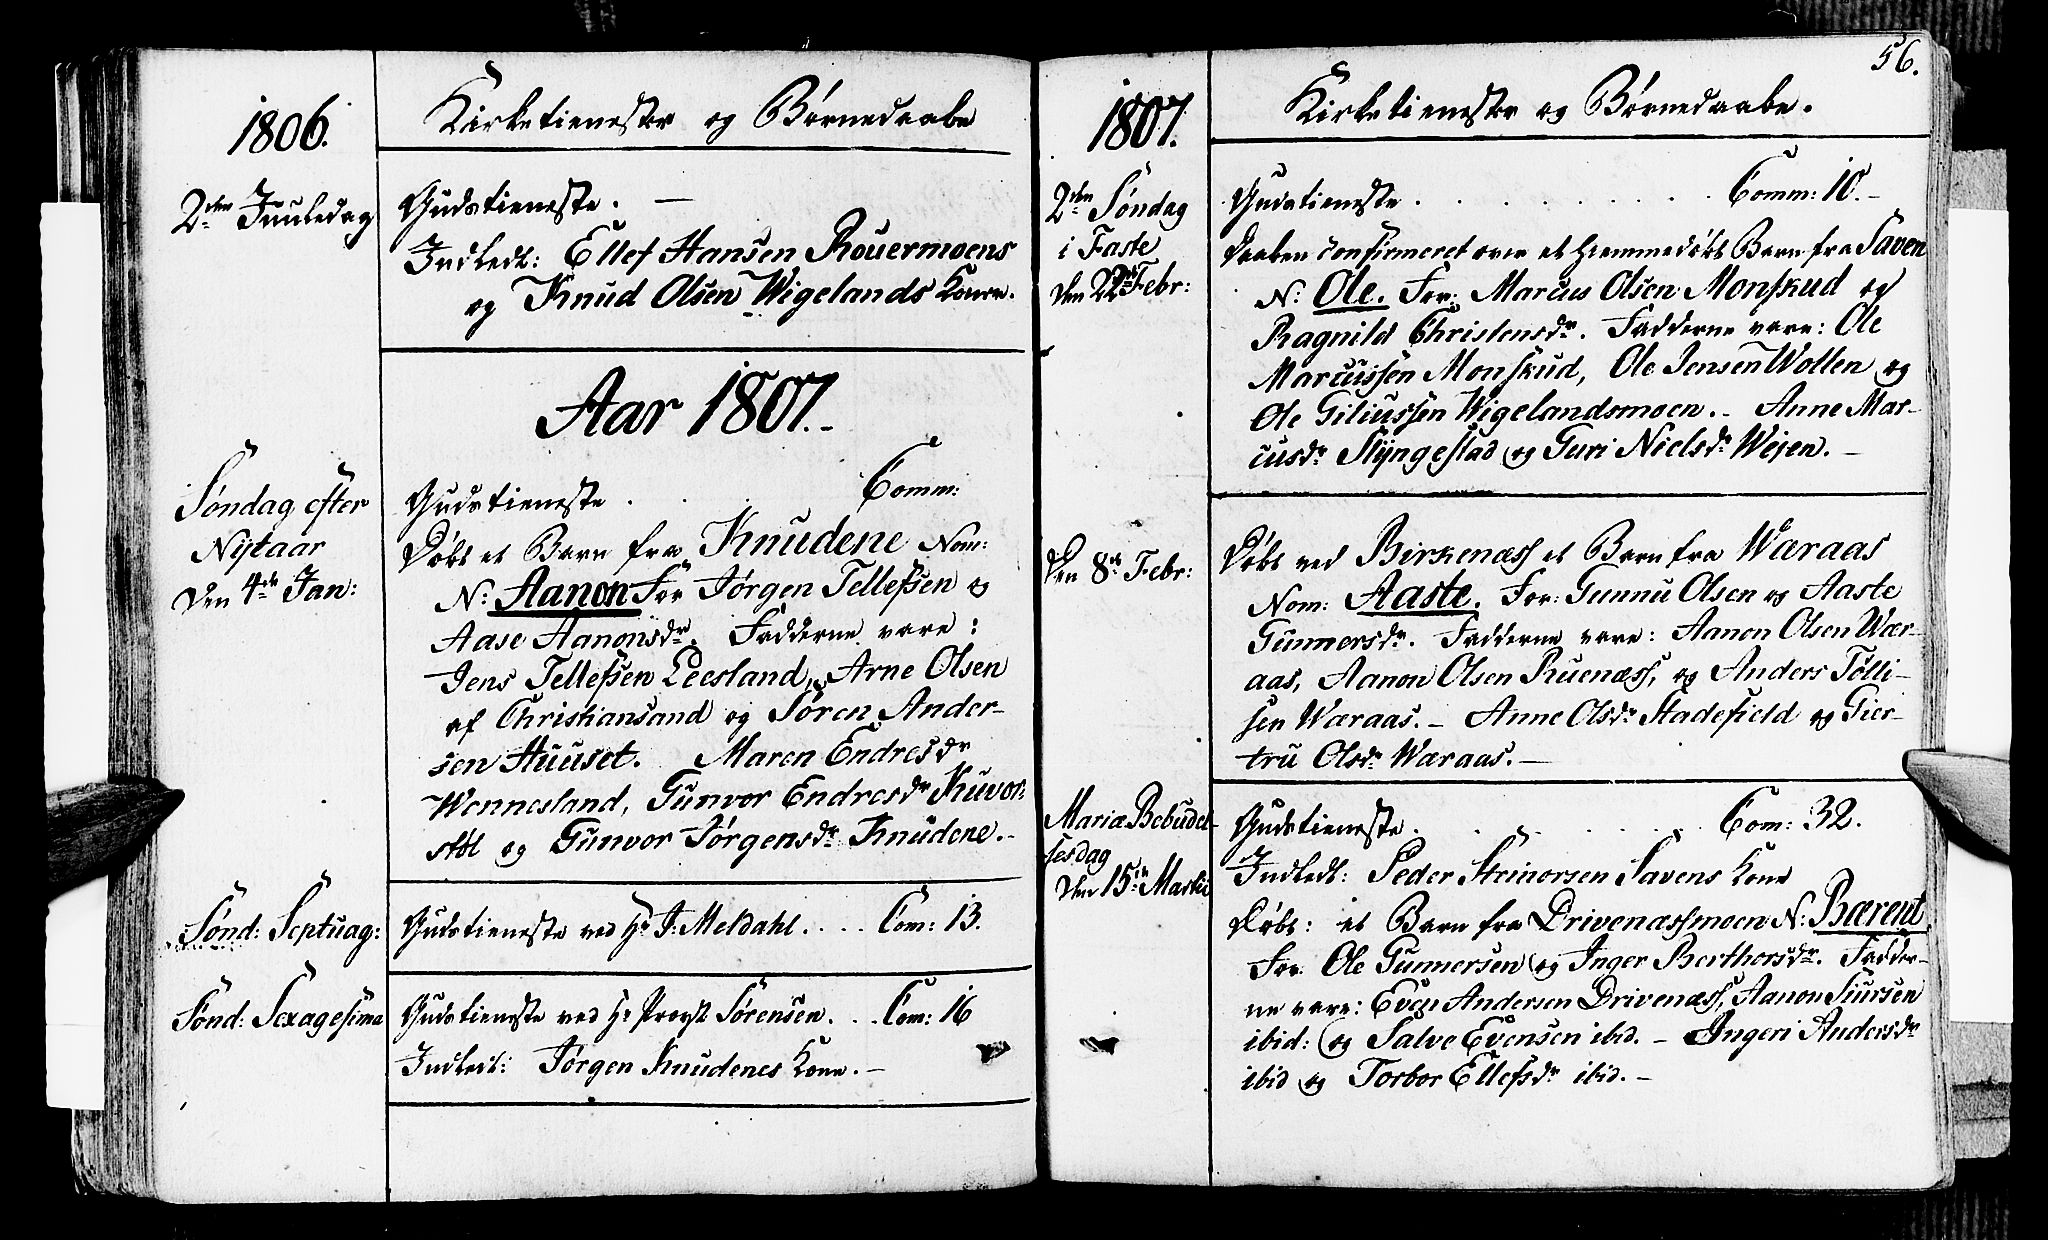 1806.
Kirketienester og Børnedaabe
2den Juuledag
Gudstieneste. —
Indledt: Ellef Hansen Rouermoens
og Knud Olsen Wigelands Koner.
Aar 1807.
Søndag efter
Nytaar
den 4de Jan:
Gudstieneste . . . Comm:
Døbt et Barn fra Knudene Nom:
N: Aanon For Jørgen Tellefsen og
Aase Aanonsdr. Fadderne vare:
Jens Tellefsen Leesland, Arne Olsen
af Christiansand og Søren Ander-
sen Huuset. Maren Endresdr
Wennesland, Gunvor Endresdr Kuvor-
støl og Gunvor Jørgensdr Knudene.-
Sønd: Septuag:
Gudstieneste ved Hr J: Meldahl. . . . Com: 13.
Sønd: Sexagesima
Gudstieneste ved Hr Provst Sørensen. . . Com: 16
Indledt: Jørgen Knudenes Kone. —
56.
1807.
Kirketienester og Børnedaabe.
2den Søndag
i Faste
den 22de Febr:
Gudstieneste . . . . . . . . . Comm: 10. -
Daaben confirmeret over et hiemmedøbt Barn fra Saven
N: Ole. For: Marcus Olsen Monskud og
Ragnild Christensdr. Fadderne vare: Ole
Marcussen Monskud, Ole Jensen Wollen og
Ole Giliussen Wigelandsmoen. - Anne Mar-
cusdr Slyngestad og Guri Nielsdr Wejen. —
den 8de Febr:
Døbt ved Birkenæss et Barn fra Wæraas
Nom: Aaste. For: Gunnu Olsen og Aaste
Gunnersdr. Fadderne vare: Aanon Olsen Wær-
aas, Aanon Olsen Ruenæss, og Anders Tølli-
sen Wæraas. - Anne Olsdr Stadefield og Gier-
tru Olsdr Wæraas. —
Mariæ Bebudel-
sesdag
den 15de Martii
Gudstieneste. . . . . . . . Com: 32.
Indledt: Peder Steinersen Savens Kone
Døbt: et Barn fra Drivenæssmoen N: Bærent.
For: Ole Gunnersen og Inger Berthorsdr. Fadder-
ne vare: Even Andersen Drivenæss, Aanon Siursen
ibid: og Salve Evensen ibid. - Ingeri Andersdr
ibid og Torbor Ellefsdr ibid. —